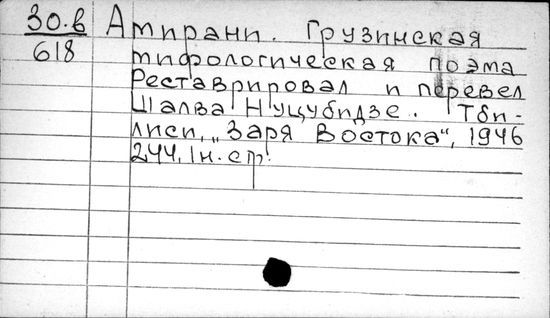 30.в Амирани. Грузинская
618 мифологическая поэма
Реставрировал и перевел
Шалва Нуцубидзе. Тби-
лиси, „Заря Востока“, 1946
244, 1 н. стр.